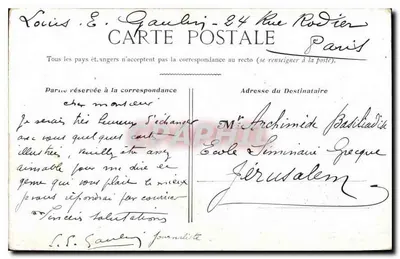 Louis. E. Gaubin - 24 Rue Rodier
Paris
CARTE POSTALE
Tous les pays étrangers n'acceptent pas la correspondance au recto (se renseigner à la poste)
Partie réservée à la correspondance
Adresse du Destinataire
cher monsieur
Je serais très heureux d'échanger
avec vous quelques cart
illustrées, veuillez être assez
aimable pour me dire en
genre qui vous plait le mieux
je vous répondrai par courrier
Sincères salutations
L. E. Gaubin journaliste
Mr. Archimède Basiliadis
Ecole Séminaire Grecque
Jérusalem